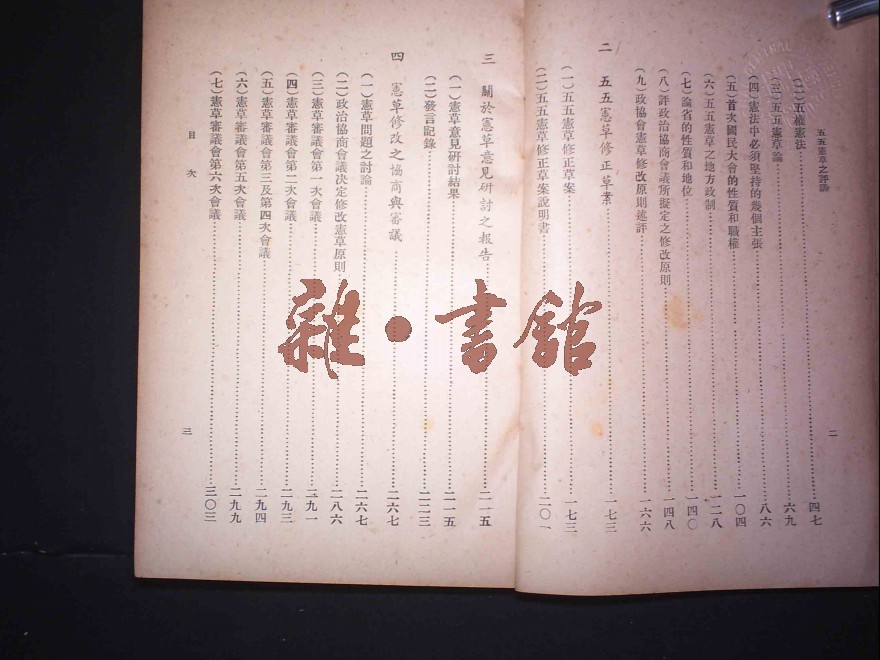 五五憲草之評論
二
(二)五權憲法……四七
(三)五五憲草論……六九
(四)憲法中必須堅持的幾個主張……八六
(五)首次國民大會的性質和職權……一〇四
(六)五五憲草之地方政制……一二八
(七)論省的性質和地位……一四〇
(八)評政治協商會議所擬定之修改原則……一四八
(九)政協會憲草修改原則述評……一六六
二 五五憲草修正草案……一七三
(一)五五憲草修正草案……一七三
(二)五五憲草修正草案說明書……二〇一
三 關於憲草意見研討之報告……二一五
(一)憲草意見研討結果……二一五
(二)發言記錄……二二三
四 憲草修改之協商與審議……二六七
(一)憲草問題之討論……二六七
(二)政治協商會議決定修改憲草原則……二八六
(三)憲草審議會第一次會議……二九一
(四)憲草審議會第二次會議……二九三
(五)憲草審議會第三及第四次會議……二九四
(六)憲草審議會第五次會議……二九九
(七)憲草審議會第六次會議……三〇三
目次
三
雜·書館